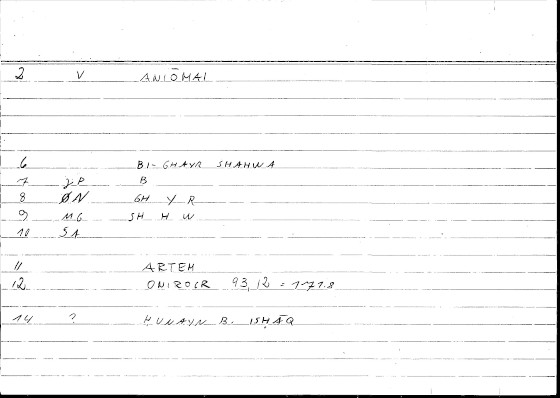 2 V ANIŌMAI
6 BI-GHAYR SHAHWA
7 γP B
8 ØN GH Y R
9 MG SH H W
10 SA
11 ARTEM
12 ONIROCR 93,12 = 171.8
14 ? HUNAYN B. ISḤĀQ